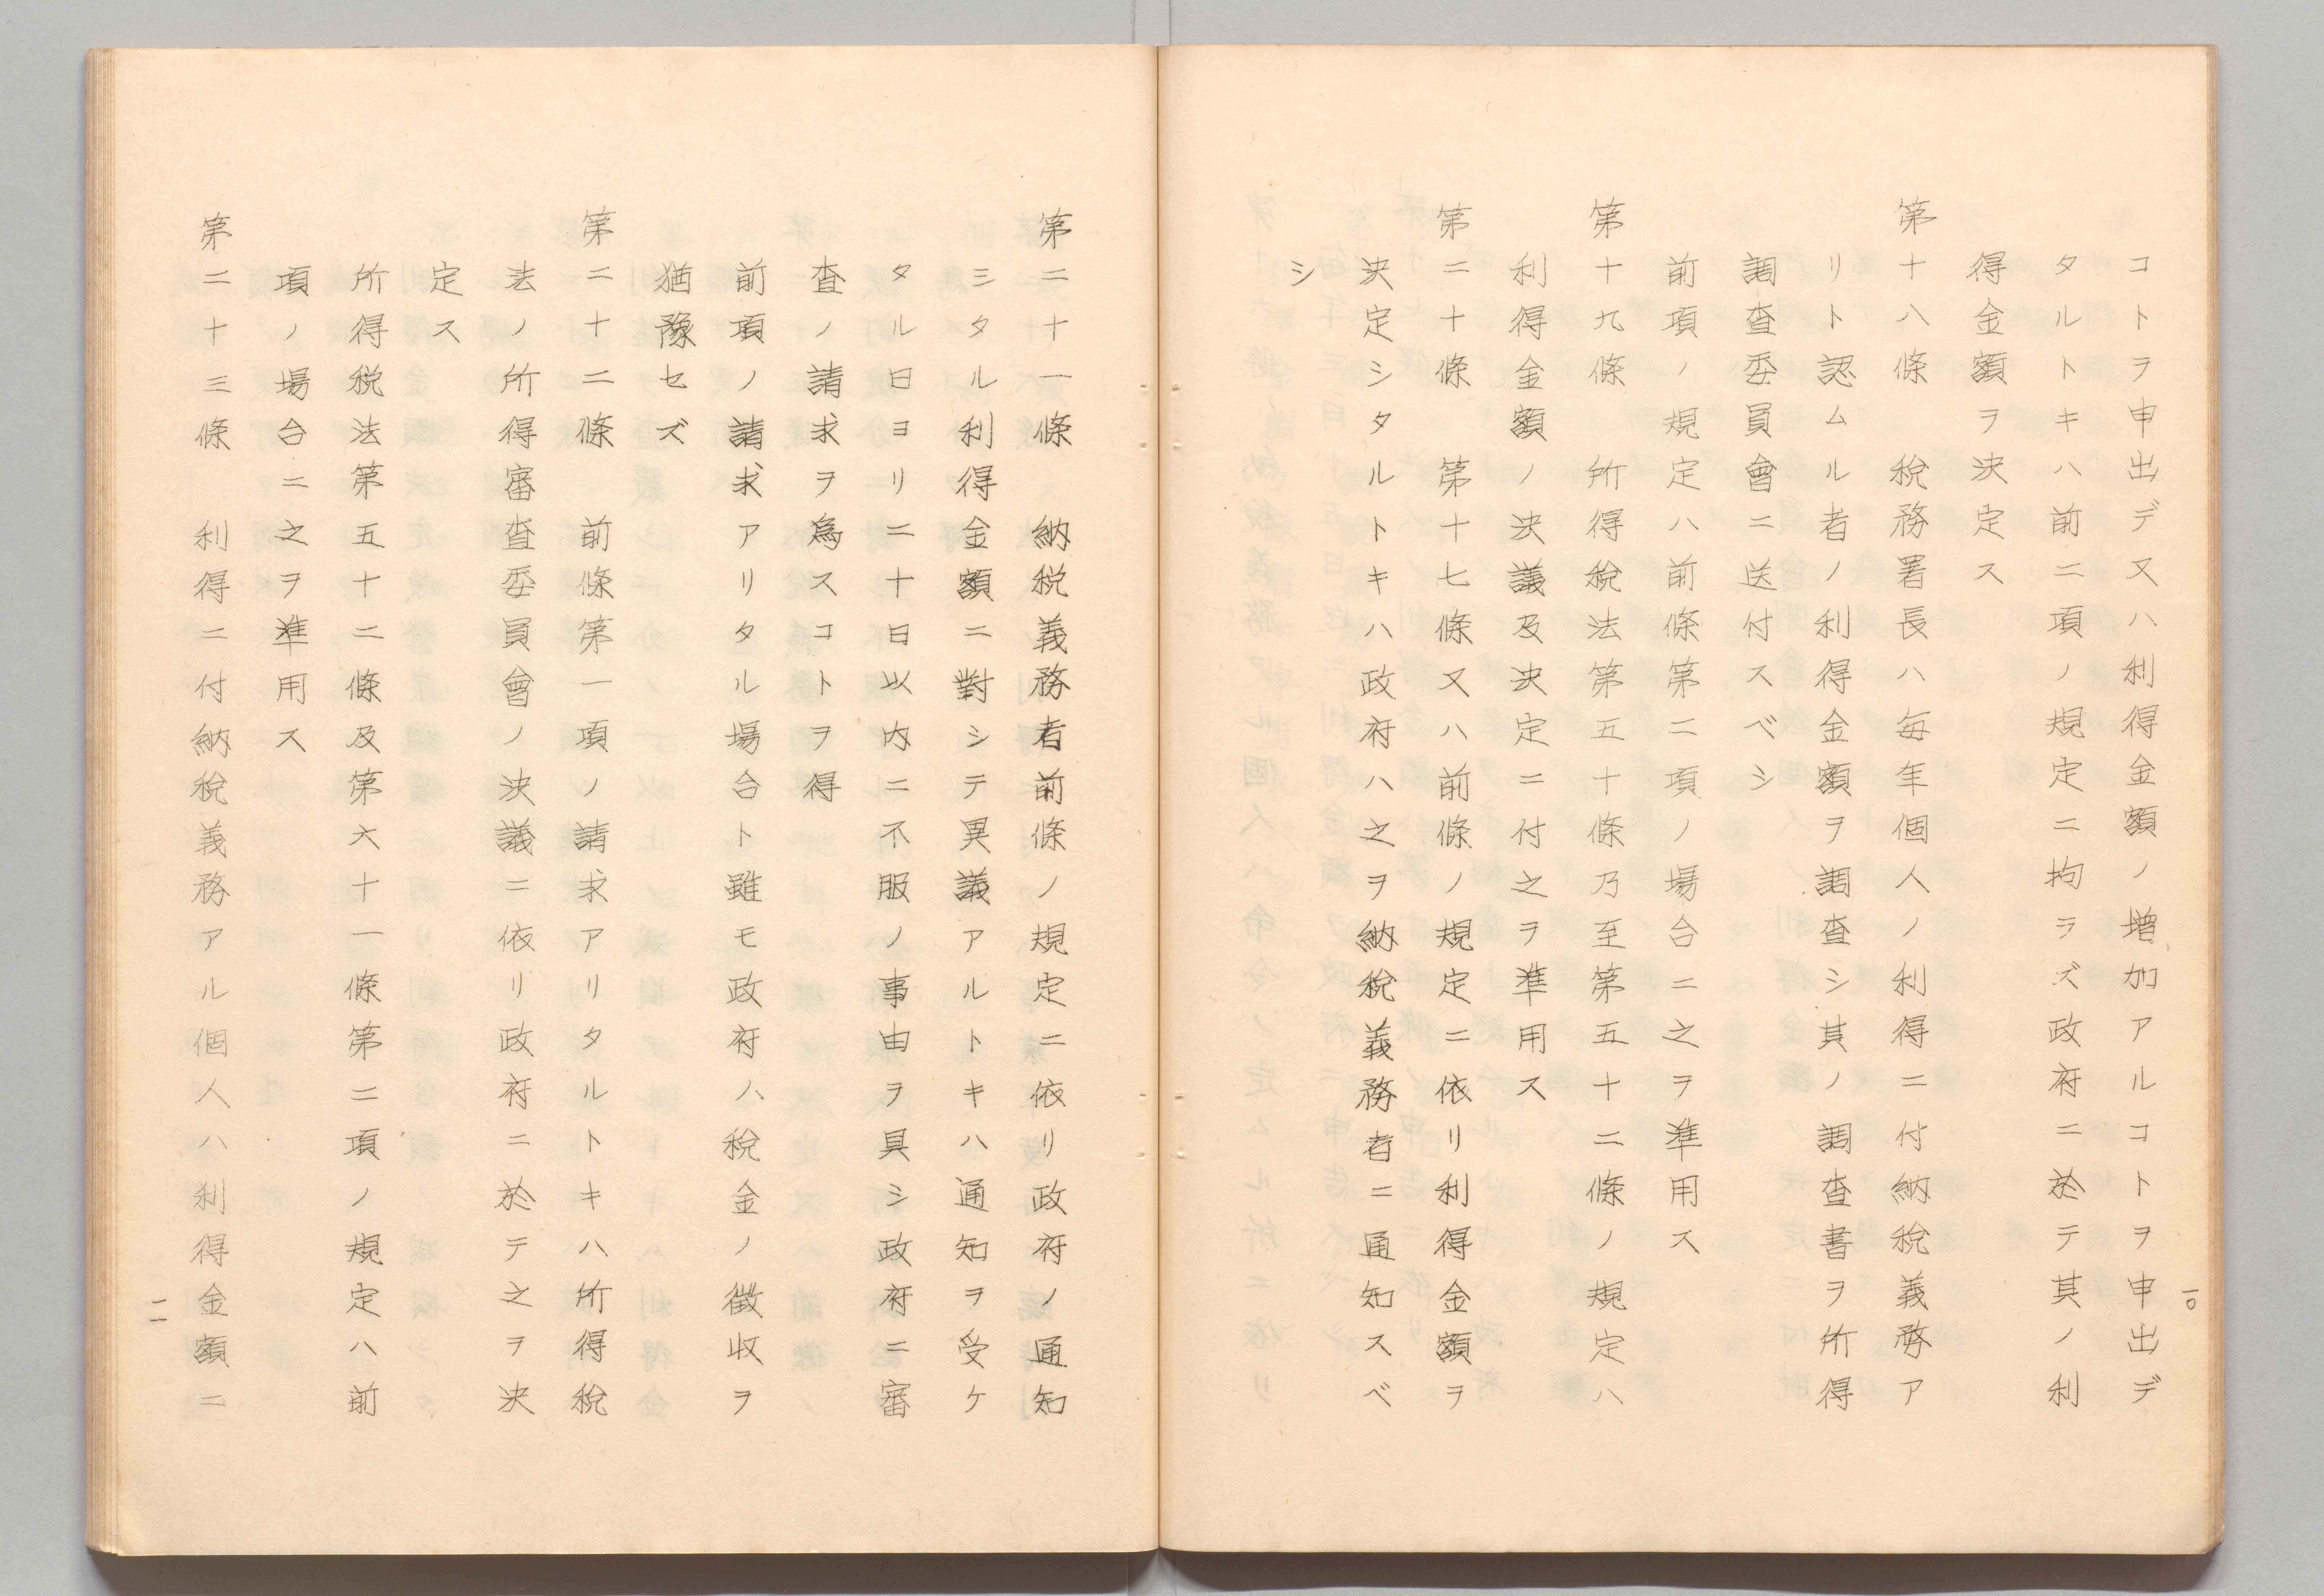 コトヲ申出デ又ハ利得金額ノ増加アルコトヲ申出デ
タルトキハ前二項ノ規定ニ拘ラズ政府ニ於テ其ノ利
得金額ヲ決定ス
第十八條　稅務署長ハ每年個人ノ利得ニ付納稅義務ア
リト認ムル者ノ利得金額ヲ調査シ其ノ調査書ヲ所得
調査委員會ニ送付スベシ
前項ノ規定ハ前條第二項ノ場合ニ之ヲ準用ス
第十九條　所得稅法第五十條乃至第五十二條ノ規定ハ
利得金額ノ決議及決定ニ付之ヲ準用ス
第二十條　第十七條又ハ前條ノ規定ニ依リ利得金額ヲ
決定シタルトキハ政府ハ之ヲ納稅義務者ニ通知スベ
シ
一〇
第二十一條　納稅義務者前條ノ規定ニ依リ政府ノ通知
ミタル利得金額ニ對シテ異議アルトキハ通知ヲ受ケ
タル日ヨリ二十日以内ニ不服ノ事由ヲ具シ政府ニ審
査ノ請求ヲ為スコトヲ得
前項ノ請求アリタル場合ト雖モ政府ハ稅金ノ徴収ヲ
猶豫セズ
第二十二條　前條第一項ノ請求アリタルトキハ所得稅
法ノ所得審査委員會ノ決議ニ依リ政府ニ於テ之ヲ決
定ス
所得稅法第五十二條及第六十一條第二項ノ規定ハ前
項ノ場合ニ之ヲ準用ス
第二十三條　利得ニ付納稅義務アル個人ハ利得金額ニ
一一